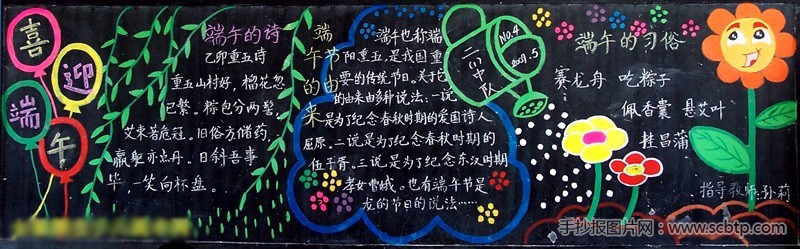 喜
迎
端
午
端午的诗
乙卯重五诗
重五山村好，榴花忽
已繁。粽包分两髻，
艾束著危冠。旧俗方储药，
羸躯亦点丹。日斜吾事
毕，一笑向杯盘。
端午节的由来
端午也称端
阳重五，是我国重
要的传统节日。关于它
的由来由多种说法：一说
是为了纪念春秋时期的爱国诗人
屈原。二说是为了纪念春秋时期的
伍子胥。三说是为了纪念东汉时期
孝女曹娥。也有端午节是
龙的节日的说法……
No.4
2009.5
二(1)中队
端午的习俗
赛龙舟 吃粽子
佩香囊 悬艾叶
挂菖蒲
指导教师：孙莉
手抄报图片网：www.scbtp.com